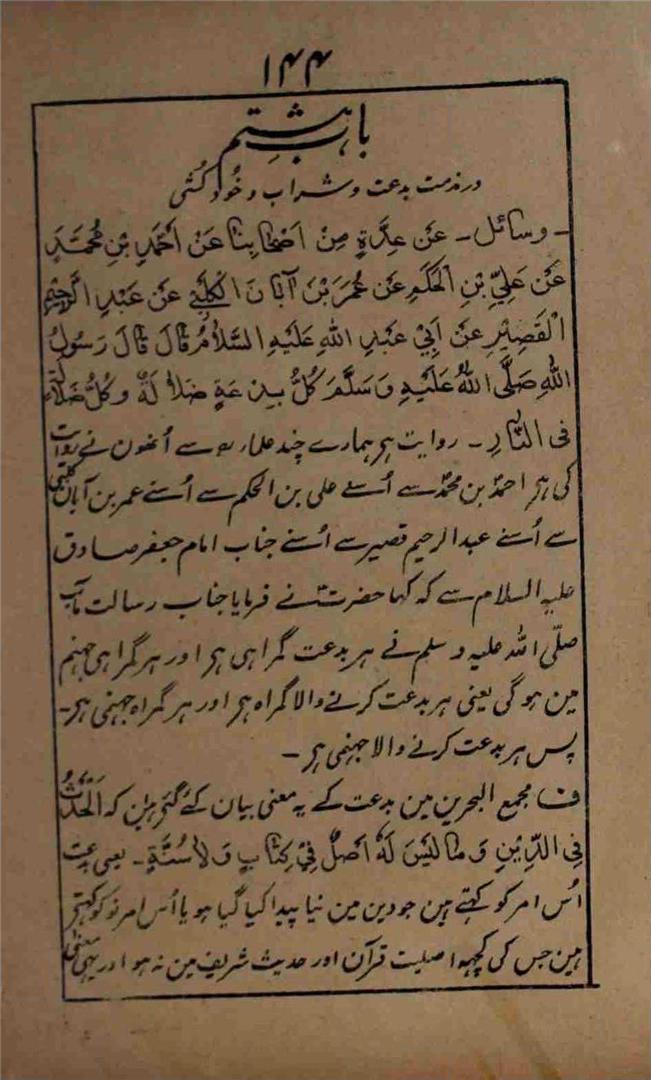 ۱۴۴
باب ہشتم
در مذمت بدعت و شراب و خودکشی
۔ وسائل ۔ عَن عِدَّةٍ مِنْ اَصْحَابِنَا عَنْ اَحْمَدَ بْنِ مُحَمَّدٍ
عَنْ عَلِيِّ بْنِ الْحَكَمِ عَنْ عُمَرَ بْنَ اَبَانَ الْكَلْبِیّ عَنْ عَبْدِ الرَّحِيْمِ
الْقَصِيْرِ عَنْ اَبِيْ عَبْدِ اللهِ عَلَيْهِ السَّلَامُ قَالَ قَالَ رَسُولُ
اللهِ صَلَّی اللهُ عَلَيْهِ وَسَلَّمَ كُلُّ بِدْعَةٍ ضَلَالَةٌ وَكُلُّ ضَلَالَةٍ
فِی النَّارِ ۔ روایت ہی ہمارے چند علماء سے اُنھون نے روایت
کی ہی احمدؐ بن محمدؐ سے اُسنے علی بن الحکم سے اُسنے عمر بن آبان کلبی
سے اُسنے عبد الرحیم قصیر سے اُسنے جناب امام جعفر صادق
علیہ السلام سے کہ کہا حضرتؑ نے فرمایا جناب رسالت مآب
صلّی اللہ علیہ و سلم نے ہر بدعت گمراہی ہی اور ہر گمراہی جہنم
مین ہوگی یعنی ہر بدعت کرنے والا گمراہ ہی اور ہر گمراہ جہنمی ہی۔
پس ہر بدعت کرنے والا جہنمی ہی ۔
ف مجمع البحرین مین بدعت کے یہ معنی بیان کئے گئے ہین کہ اَلْحَدَثُ
فِی الدِّيْنِ وَ مَا لَيْسَ لَهُ اَصْلٌ فِيْ كِتَابٍ وَلَا سُنَّةٍ ۔ یعنی بدعت
اُس امر کو کہتے ہین جو دین مین نیا پیدا کیا گیا ہو یا اُس امر نو کو کہتے
ہین جس کی کچھ اصلیت قرآن اور حدیث شریف مین نہ ہو اور یہی معنی